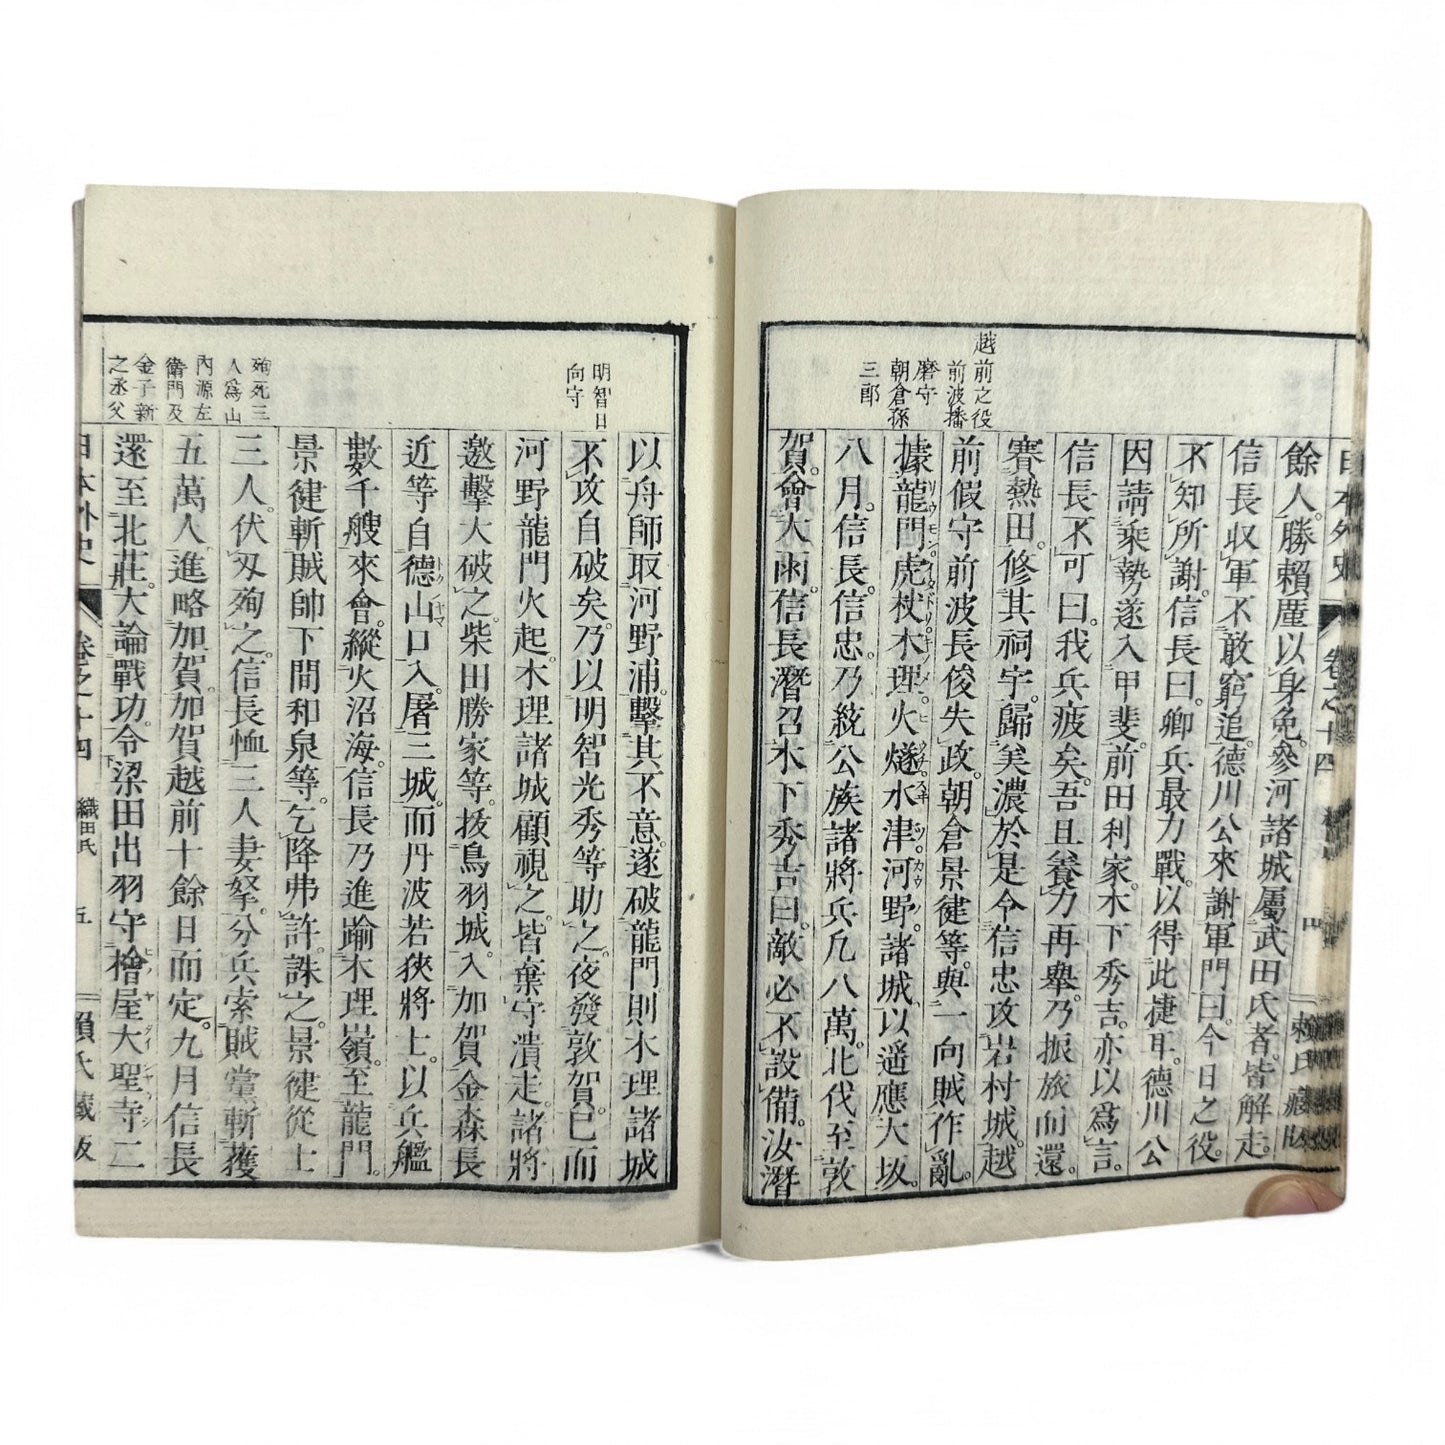 日本外史 卷之十四 織田氏 四 頼氏藏版
越前之役
前波播
磨守
朝倉孫
三郎
餘人。勝賴僅以身免。參河諸城屬武田氏者。皆解走。
信長收軍不敢窮追。德川公來謝軍門曰。今日之役。
不知所謝。信長曰。卿兵最力戰。以得此捷耳。德川公
因請乘勢遂入甲斐。前田利家。木下秀吉。亦以爲言。
信長不可曰。我兵疲矣。吾且養力再擧。乃振旅而還。
賽熱田。修其祠宇。歸美濃。於是令信忠攻岩村城。越
前假守前波長俊失政。朝倉景健等。與一向賊作亂。
據龍門虎杖木理。火燧水津河野。諸城。以遥應大坂。
八月。信長。信忠。乃統公族諸將兵凡八萬。北伐至敦
賀。會大雨。信長潛召木下秀吉曰。敵必不設備。汝潛
明智日
向守
殉死三
人爲山
內源左
衞門及
金子新
之丞父
以舟師取河野浦。擊其不意。遂破龍門。則木理諸城
不攻自破矣。乃以明智光秀等助之。夜發敦賀。已而
河野龍門火起。木理諸城顧視之。皆棄守潰走。諸將
邀擊大破之。柴田勝家等。拔鳥羽城。入加賀。金森長
近等自德山口入。屠三城。而丹波若狹將士。以兵艦
數千艘來會。縱火沼海。信長乃進踰木理嶺。至龍門。
景健斬賊帥下間和泉等。乞降弗許。誅之。景健從士
三人。伏刃殉之。信長恤三人妻孥。分兵索賊黨。斬獲
五萬人。進略加賀。加賀越前十餘日而定。九月信長
還至北莊。大論戰功。令梁田出羽守檜屋大聖寺二
日本外史 卷之十四 織田氏 五 頼氏藏版